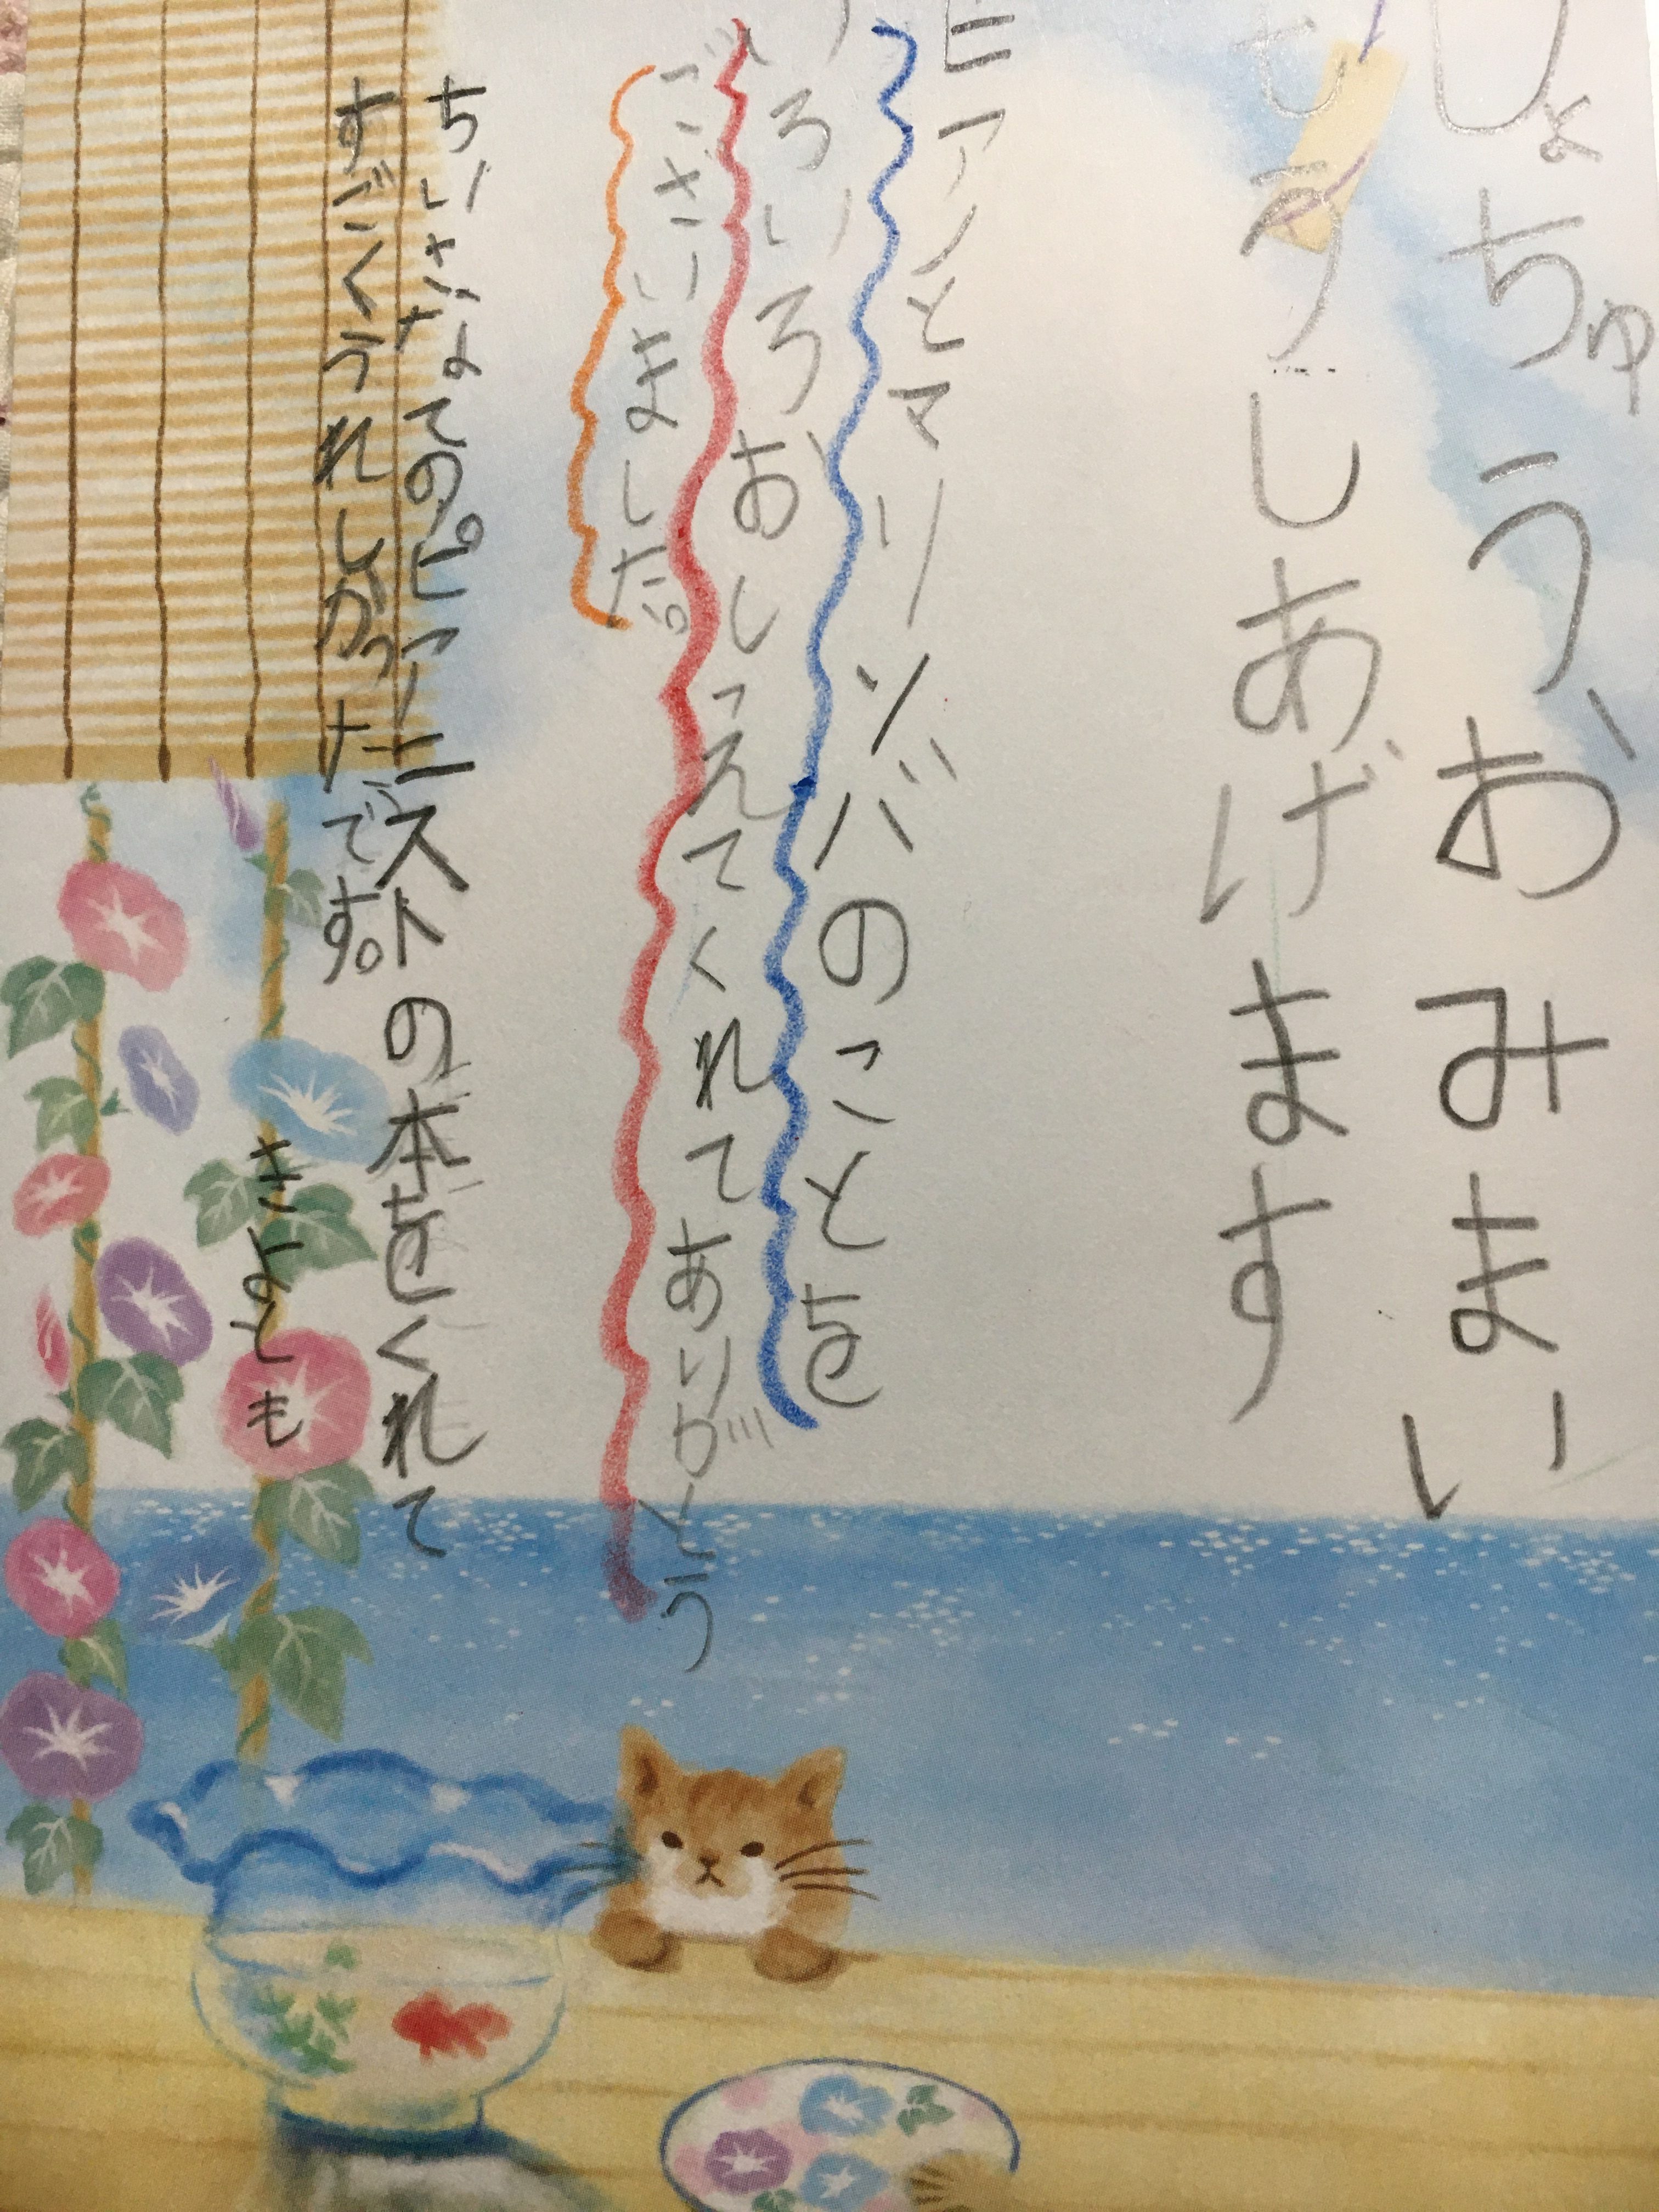 しょちゅう、おみまい
もうしあげます
ピアノとマリンバのことを
いろいろおしえてくれてありがとう
ございました。
ちいさなてのピアニストの本をくれて
すごくうれしかったです。
きよとも